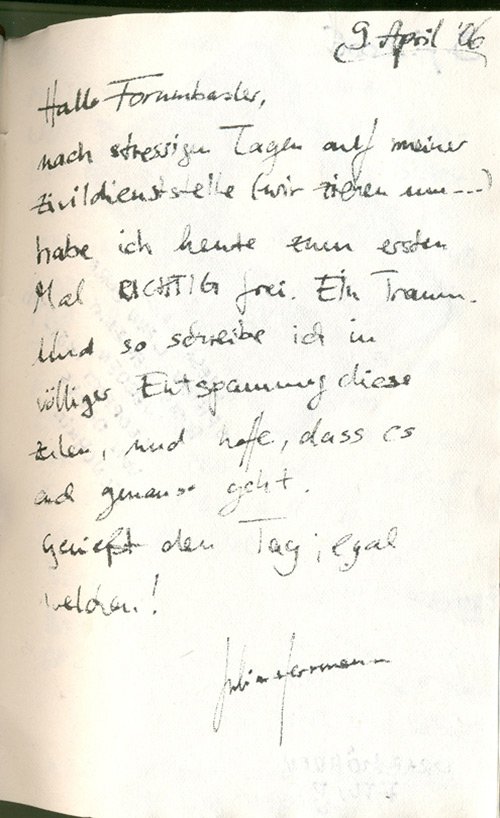 9. April '06
Hallo Forumbasler,
nach stressigen Tagen auf meiner
Zivildienststelle (wir ziehen um...)
habe ich heute zum ersten
Mal RICHTIG frei. Ein Traum.
Und so schreibe ich in
völliger Entspannung diese
Zeilen, und hoffe, dass es
euch genauso geht.
Genießt den Tag; egal
welchen!